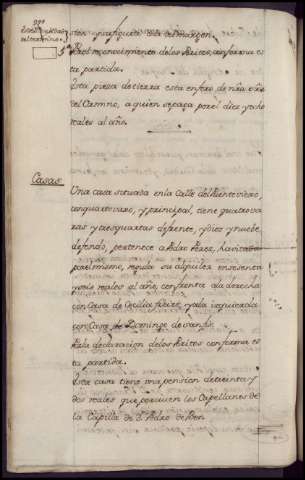 tón una figura como la del margen.
Por el reconocimiento de los Peritos, conforma es
ta partida.
Esta pieza declara esta en foro de nra. sra.
del Carmno, a quien se paga por el diez y ocho
reales al año.
Casas.
Una casa situada en la Calle del Puente viejo,
con quarto vajo, y principal, tiene quatro va
ras y tres quartas de frente, y diez y nuebe
de fondo, pertenece a Pedro Perez, havitada
por el mismo, regula su alquiler en sesenta
y seis reales al año, confronta a la derecha
con Casa de Cecilia Perez, y a la izquierda
con Casa de Domingo de
Por la declaracion de los Peritos conforma es
ta partida.
Esta casa tiene una pension de treinta y
dos reales que perciven los Capellanes de
la Capilla de S. Pedro de